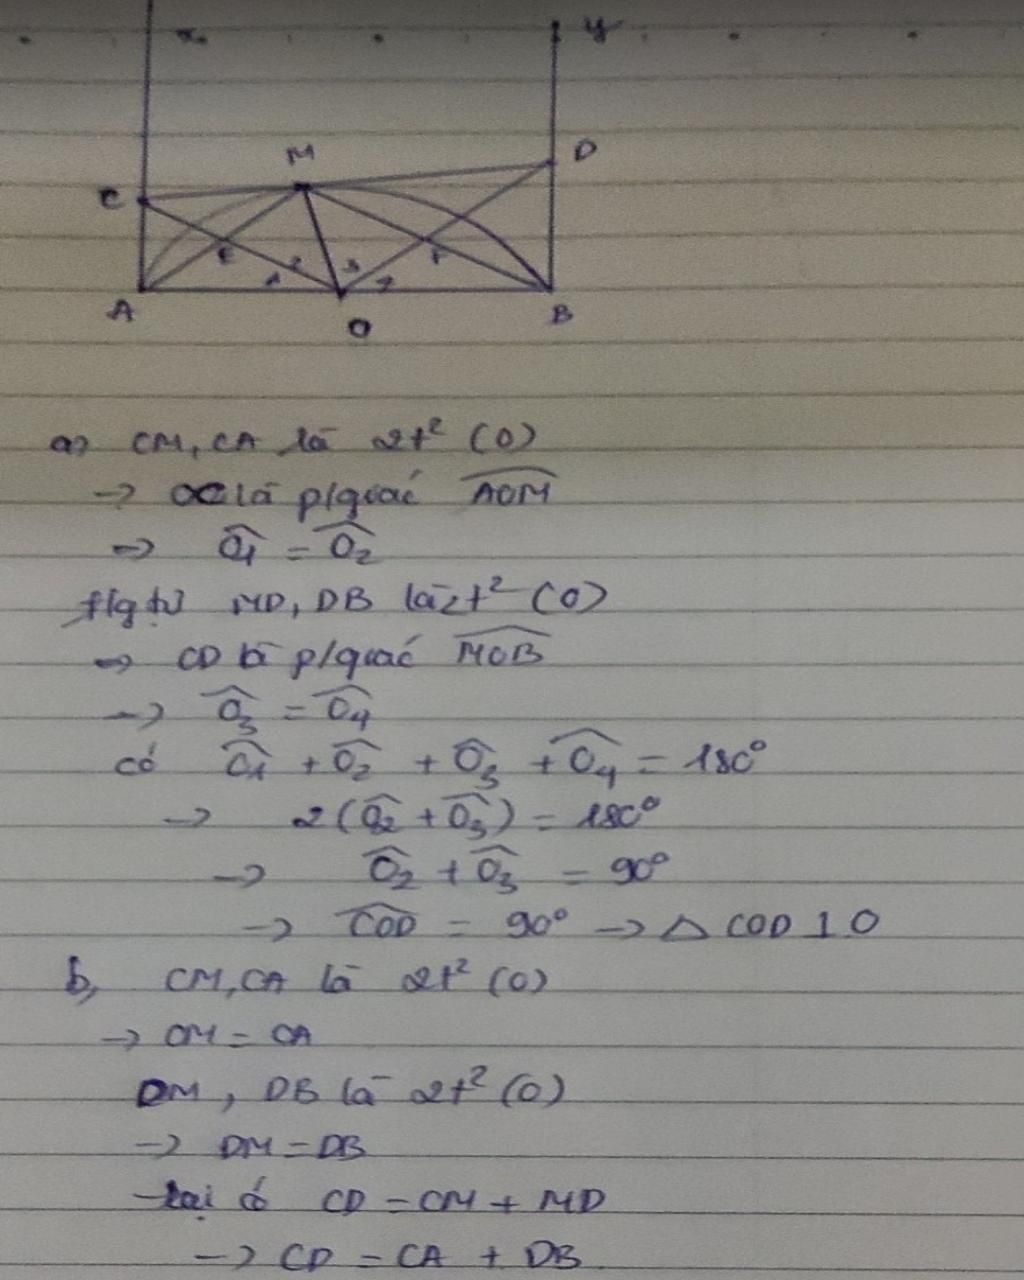 x
y
M
D
C
E
F
1
2
3
A
O
B
a) CM, CA là 2t² (O)
→ OC là p/giác AOM
→ O1 = O2
MD, DB là 2t² (O)
→ CD là p/giác MOB
→ O3 = O4
có O1 + O2 + O3 + O4 = 180°
→ 2(O2 + O3) = 180°
→ O2 + O3 = 90°
→ COD = 90° → △ COD ⊥ O
b, CM, CA là 2t² (O)
→ CM = CA
DM, DB là 2t² (O)
→ DM = DB
lại có CD = CM + MD
→ CD = CA + DB